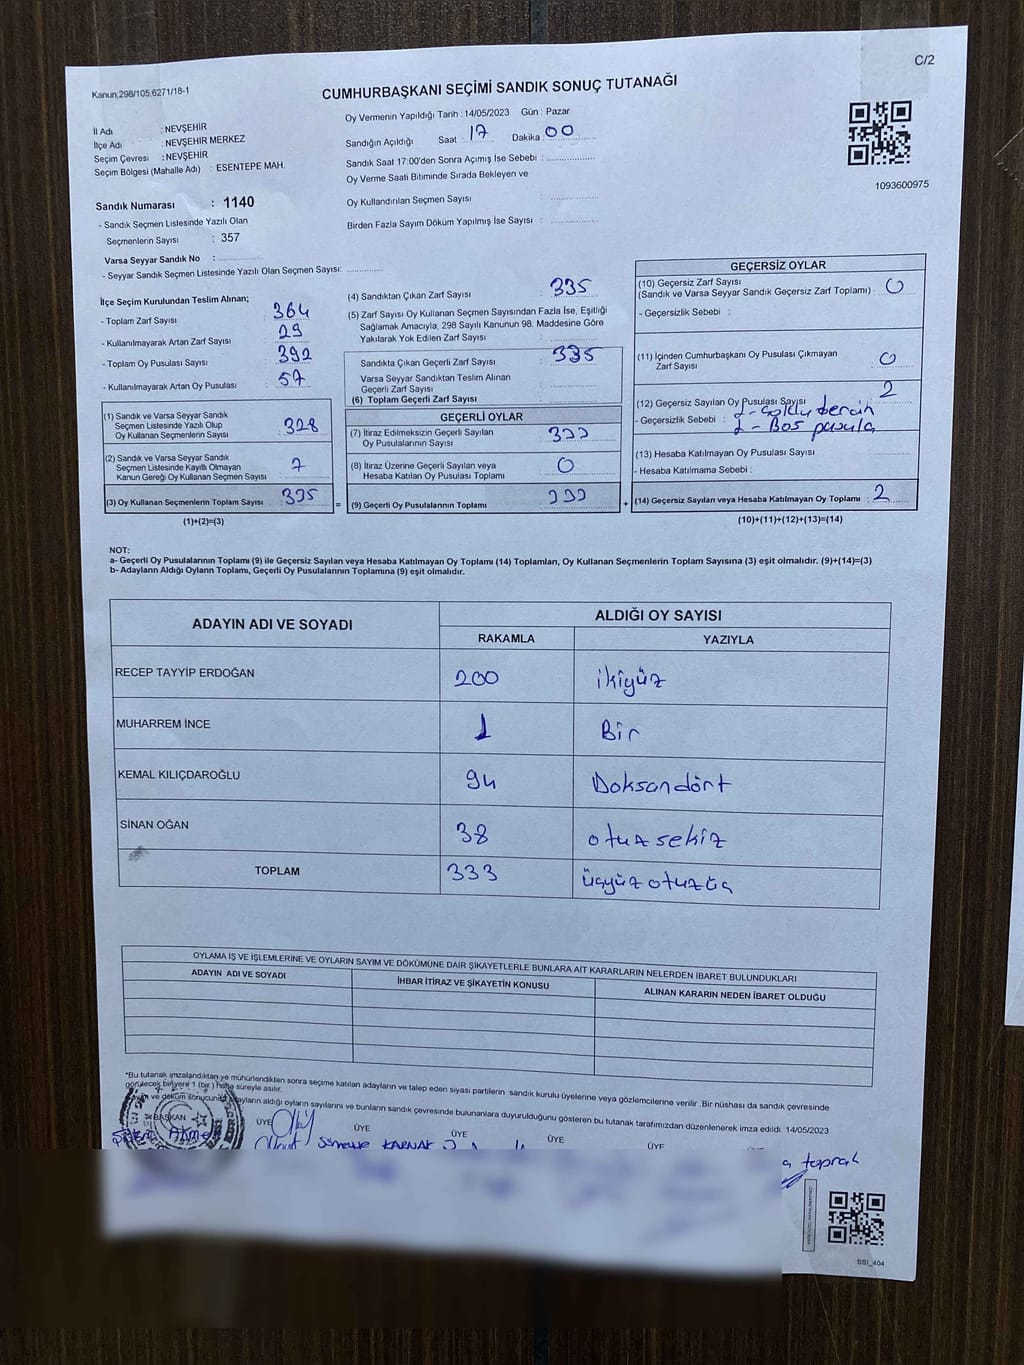 C/2
Kanun.298/105.6271/18-1
CUMHURBAŞKANI SEÇİMİ SANDIK SONUÇ TUTANAĞI
İl Adı : NEVŞEHİR
İlçe Adı : NEVŞEHİR MERKEZ
Seçim Çevresi : NEVŞEHİR
Seçim Bölgesi (Mahalle Adı) : ESENTEPE MAH.
Oy Vermenin Yapıldığı Tarih : 14/05/2023 Gün : Pazar
Sandığın Açıldığı Saat 17 Dakika 00
Sandık Saat 17:00'den Sonra Açımış İse Sebebi :
Oy Verme Saati Bitiminde Sırada Bekleyen ve
Oy Kullandırılan Seçmen Sayısı :
Birden Fazla Sayım Döküm Yapılmış İse Sayısı :
1093600975
Sandık Numarası : 1140
- Sandık Seçmen Listesinde Yazılı Olan
Seçmenlerin Sayısı : 357
Varsa Seyyar Sandık No :
- Seyyar Sandık Seçmen Listesinde Yazılı Olan Seçmen Sayısı:
İlçe Seçim Kurulundan Teslim Alınan;
- Toplam Zarf Sayısı : 364
- Kullanılmayarak Artan Zarf Sayısı : 29
- Toplam Oy Pusulası Sayısı : 392
- Kullanılmayarak Artan Oy Pusulası : 57
(1) Sandık ve Varsa Seyyar Sandık
Seçmen Listesinde Yazılı Olup
Oy Kullanan Seçmenlerin Sayısı : 328
(2) Sandık ve Varsa Seyyar Sandık
Seçmen Listesinde Kayıtlı Olmayan
Kanun Gereği Oy Kullanan Seçmen Sayısı : 7
(3) Oy Kullanan Seçmenlerin Toplam Sayısı : 335 =
(1)+(2)=(3)
(4) Sandıktan Çıkan Zarf Sayısı : 335
(5) Zarf Sayısı Oy Kullanan Seçmen Sayısından Fazla İse, Eşitliği
Sağlamak Amacıyla, 298 Sayılı Kanunun 98. Maddesine Göre
Yakılarak Yok Edilen Zarf Sayısı :
Sandıkta Çıkan Geçerli Zarf Sayısı : 335
Varsa Seyyar Sandıktan Teslim Alınan
Geçerli Zarf Sayısı :
(6) Toplam Geçerli Zarf Sayısı :
GEÇERLİ OYLAR
(7) İtiraz Edilmeksizin Geçerli Sayılan
Oy Pusulalarının Sayısı : 333
(8) İtiraz Üzerine Geçerli Sayılan veya
Hesaba Katılan Oy Pusulası Toplamı : 0
(9) Geçerli Oy Pusulalarının Toplamı : 333 +
GEÇERSİZ OYLAR
(10) Geçersiz Zarf Sayısı
(Sandık ve Varsa Seyyar Sandık Geçersiz Zarf Toplamı) : 0
- Geçersizlik Sebebi :
(11) İçinden Cumhurbaşkanı Oy Pusulası Çıkmayan
Zarf Sayısı : 0
(12) Geçersiz Sayılan Oy Pusulası Sayısı : 2
- Geçersizlik Sebebi : 1- Çoklu tercih
1- Boş pusula
(13) Hesaba Katılmayan Oy Pusulası Sayısı :
- Hesaba Katılmama Sebebi :
(14) Geçersiz Sayılan veya Hesaba Katılmayan Oy Toplamı : 2
(10)+(11)+(12)+(13)=(14)
NOT:
a- Geçerli Oy Pusulalarının Toplamı (9) ile Geçersiz Sayılan veya Hesaba Katılmayan Oy Toplamı (14) Toplamları, Oy Kullanan Seçmenlerin Toplam Sayısına (3) eşit olmalıdır. (9)+(14)=(3)
b- Adayların Aldığı Oyların Toplamı, Geçerli Oy Pusulalarının Toplamına (9) eşit olmalıdır.
ADAYIN ADI VE SOYADI ALDIĞI OY SAYISI
RAKAMLA YAZIYLA
RECEP TAYYİP ERDOĞAN 200 ikiyüz
MUHARREM İNCE 1 Bir
KEMAL KILIÇDAROĞLU 94 Doksandört
SİNAN OĞAN 38 otuzsekiz
TOPLAM 333 üçyüzotuzüç
OYLAMA İŞ VE İŞLEMLERİNE VE OYLARIN SAYIM VE DÖKÜMÜNE DAİR ŞİKAYETLERLE BUNLARA AİT KARARLARIN NELERDEN İBARET BULUNDUKLARI
ADAYIN ADI VE SOYADI İHBAR İTİRAZ VE ŞİKAYETİN KONUSU ALINAN KARARIN NEDEN İBARET OLDUĞU
*Bu tutanak imzalandıktan ve mühürlendikten sonra seçime katılan adayların ve talep eden siyasi partilerin sandık kurulu üyelerine veya gözlemcilerine verilir. Bir nüshası da sandık çevresinde
görülecek bir yere 1 (bir) hafta süreyle asılır.
Sayım ve döküm sonucunda adayların aldığı oyların sayılarını ve bunların sandık çevresinde bulunanlara duyurulduğunu gösteren bu tutanak tarafımızdan düzenlenerek imza edildi. 14/05/2023
BAŞKAN ÜYE ÜYE ÜYE ÜYE ÜYE
toprak
SSI_404